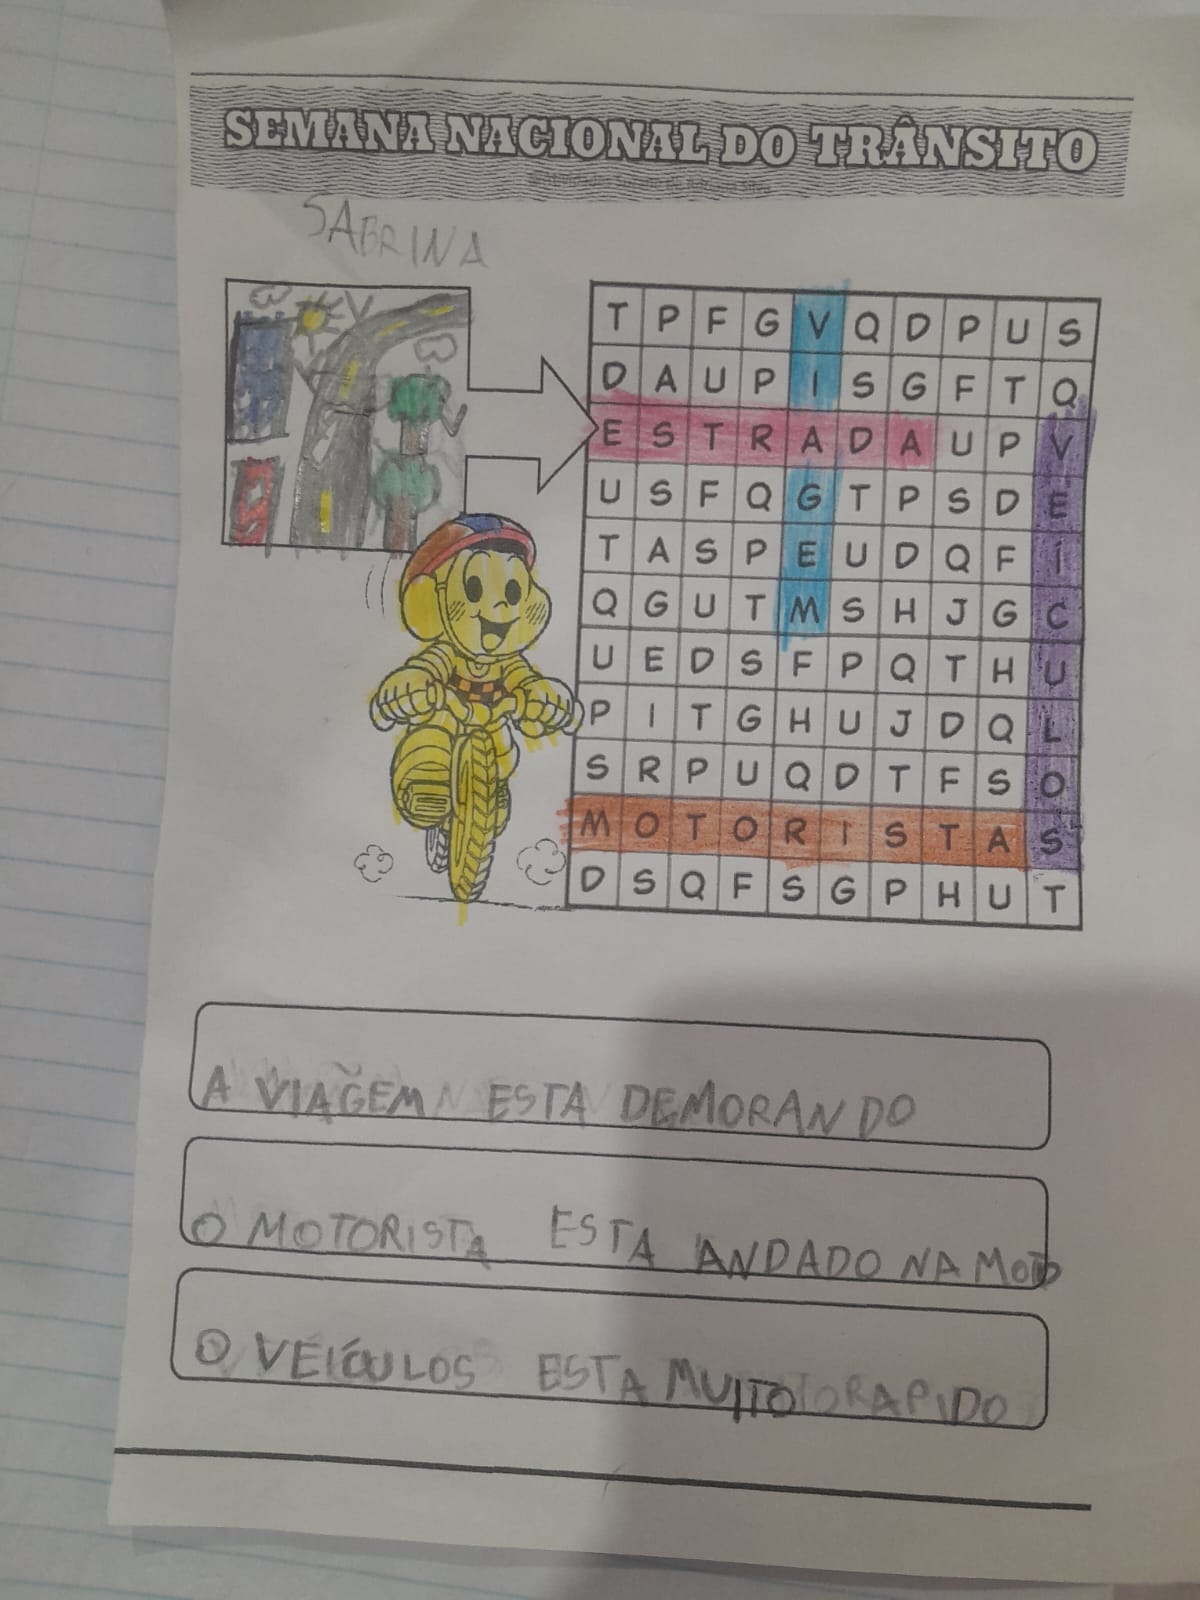 SEMANA NACIONAL DO TRÂNSITO
SABRINA
T P F G V Q D P U S
D A U P I S G F T Q
E S T R A D A U P V
U S F Q G T P S D E
T A S P E U D Q F Í
Q G U T M S H J G C
U E D S F P Q T H U
P I T G H U J D Q L
S R P U Q D T F S O
M O T O R I S T A S
D S Q F S G P H U T
A VIAGEM ESTA DEMORANDO
O MOTORISTA ESTA ANDADO NA MOTO
O VEÍCULOS ESTA MUITO RAPIDO